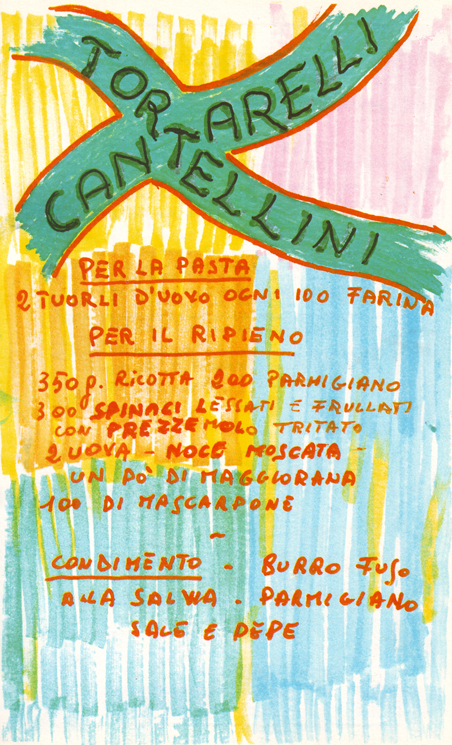 TORTELLINI
CANTARELLI
PER LA PASTA
2 TUORLI D'UOVO OGNI 100 FARINA
PER IL RIPIENO
350 g. RICOTTA 200 PARMIGIANO
300 SPINACI LESSATI E FRULLATI
CON PREZZEMOLO TRITATO
2 UOVA - NOCE MOSCATA -
UN PO' DI MAGGIORANA
100 DI MASCARPONE
~
CONDIMENTO - BURRO FUSO
ALLA SALVIA - PARMIGIANO
SALE E PEPE